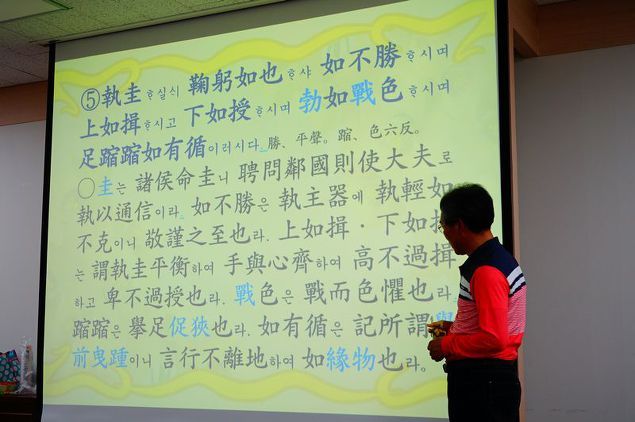 ⑤執圭ᄒᆞ실ᄉᆡ 鞠躬如也ᄒᆞ샤 如不勝ᄒᆞ시며
上如揖ᄒᆞ시고 下如授ᄒᆞ시며 勃如戰色ᄒᆞ시며
足蹜蹜如有循이러시다. 勝、平聲。蹜、色六反。
○圭는 諸侯命圭니 聘問鄰國則使大夫로
執以通信이라. 如不勝은 執主器에 執輕如
不克이니 敬謹之至也라. 上如揖·下如授
는 謂執圭平衡하여 手與心齊하여 高不過揖
하고 卑不過授也라. 戰色은 戰而色懼也라.
蹜蹜은 擧足促狹也라. 如有循은 記所謂擧
前曳踵이니 言行不離地하여 如緣物也라.